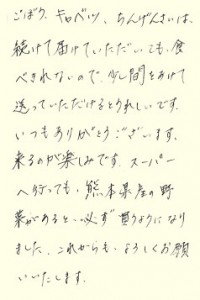 ごぼう、キャベツ、ちんげんさいは、
続けて届けていただいても、食
べきれないので、少し間をあけて
送っていただけるとうれしいです。
いつもありがとうございます。
来るのが楽しみです。スーパー
へ行っても、熊本県産の野
菜があると、必ず買うようになり
ました。これからも、よろしくお願
いいたします。